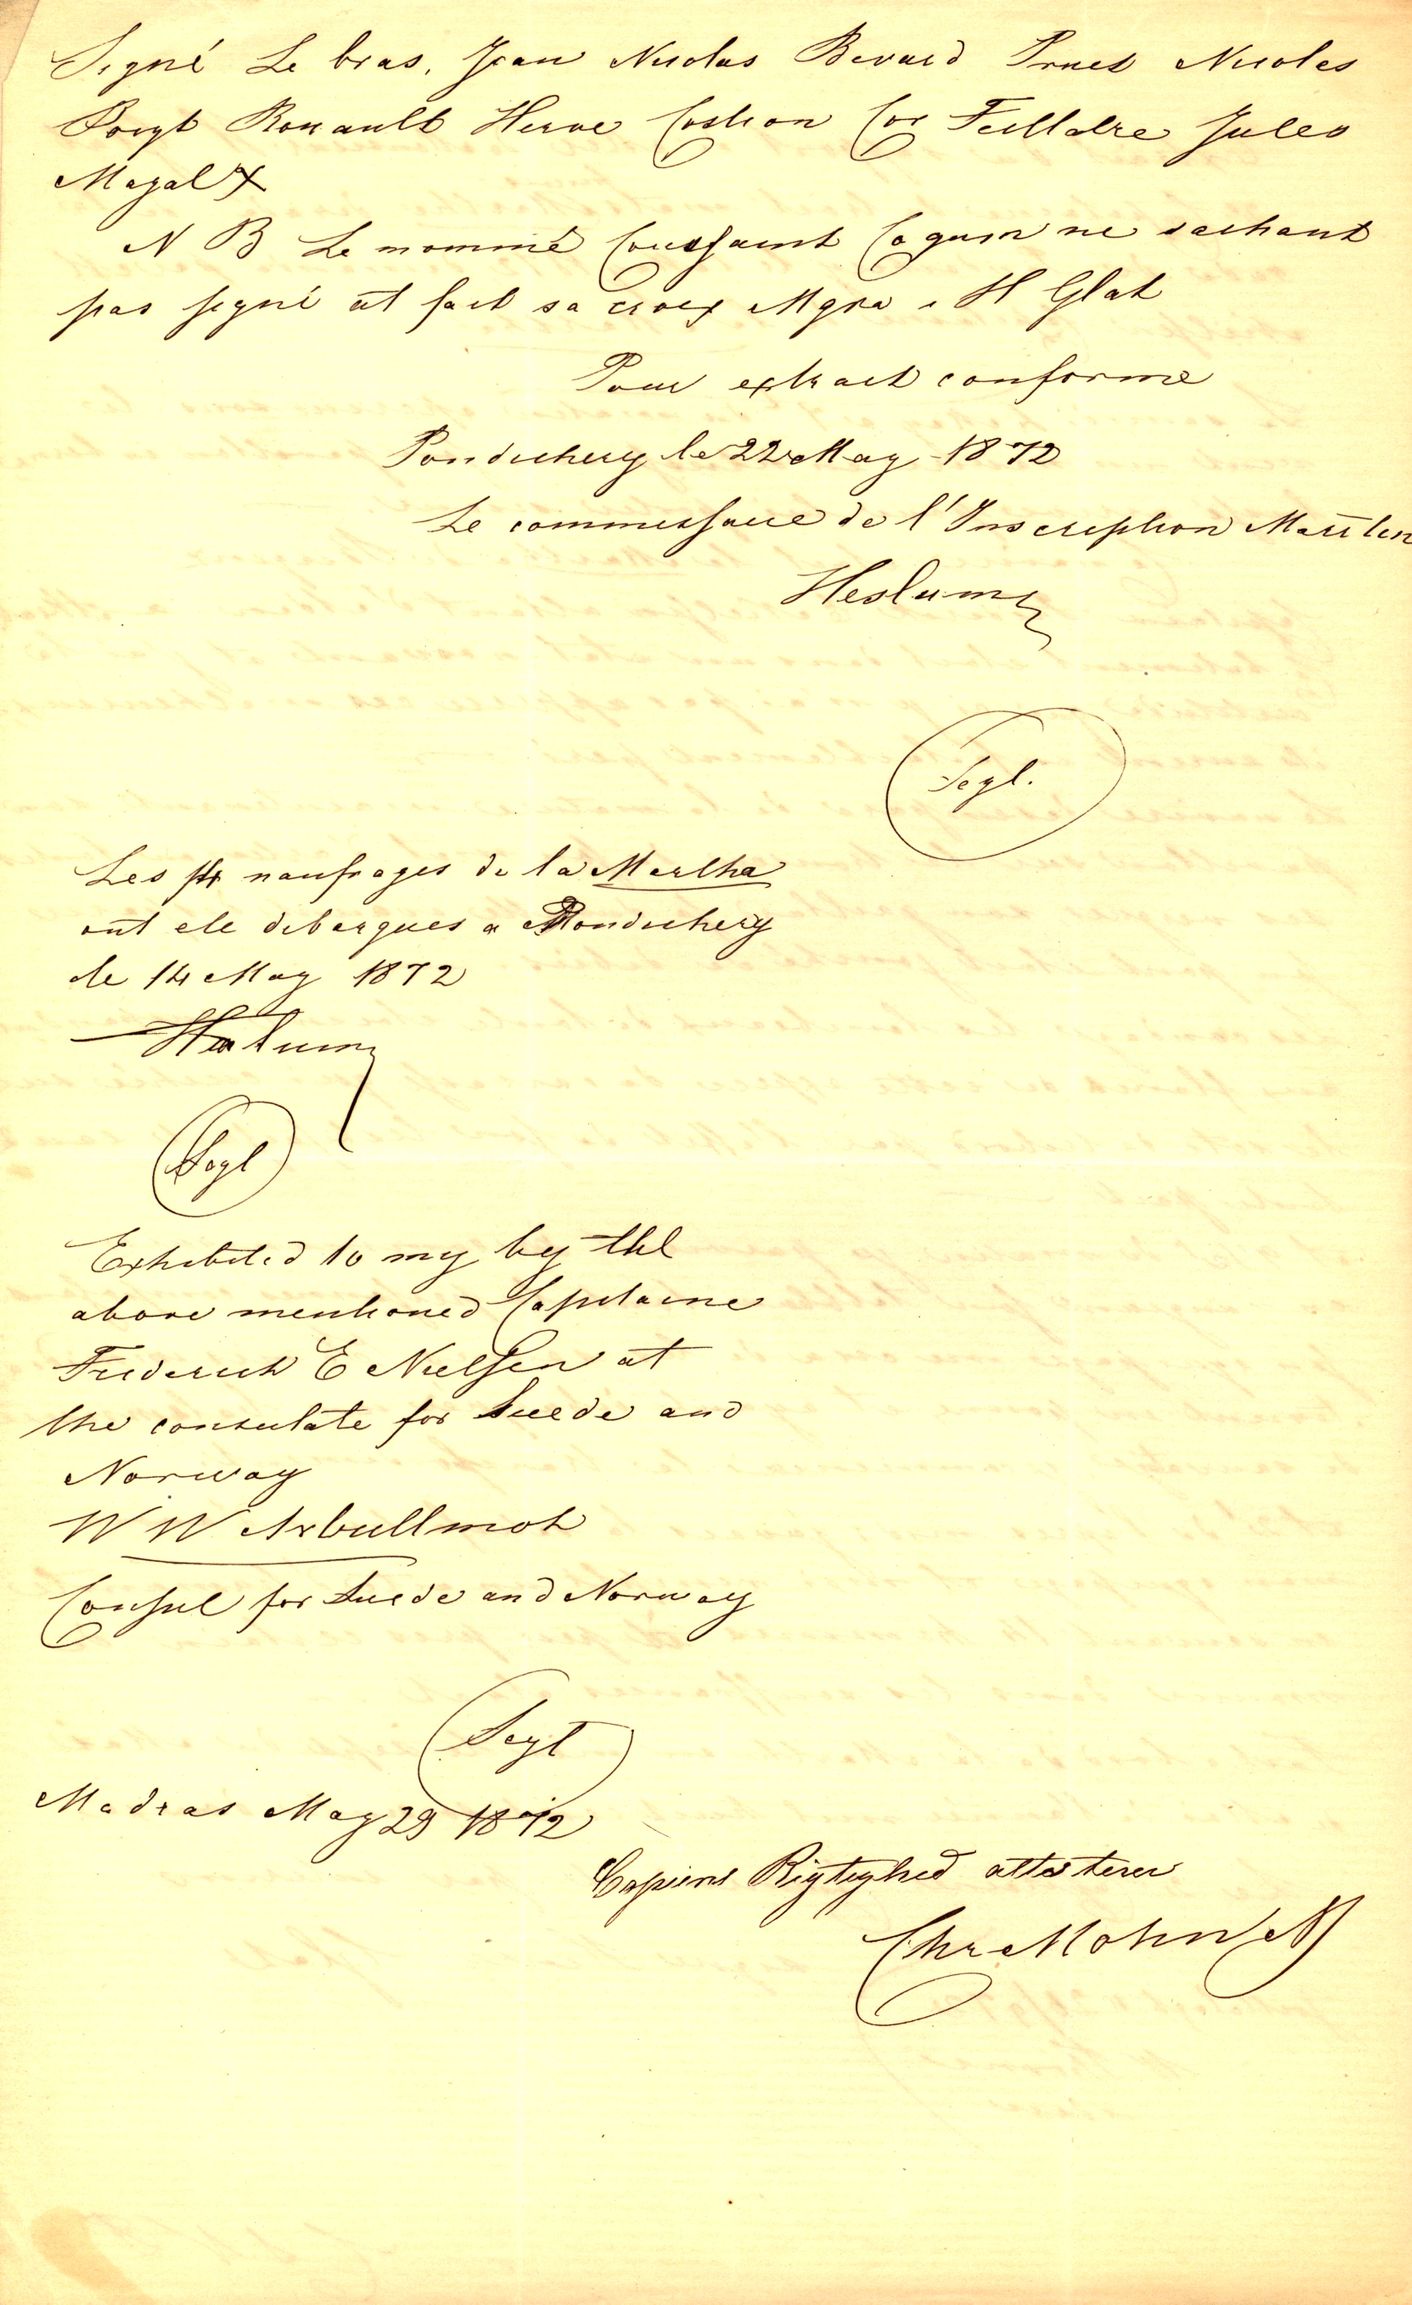 Signé Le bras. Jean Nicolas Bevard Pruet Nicoles
Poryt Rouault Herve Costion Cor Feilldre Jules
Magal X
N B Le nommé Coussaint Cogum ne sachant
pas signé at fait sa croix Mgra . H Glat
Pour extrait conforme
Pondichery le 22 May 1872
Le commissaire de l'Inscription
Heslum
Segl.
Les naufrages de la Martha
ont ele debarques a Pondichery
le 14 May 1872
Heslum
Segl
Exhibited to my by the
above mentioned Capitaine
Friderich E Nielsen at
the consulate for Suede and
Norway
W W Arbullmot
Consul for Suede and Norway
Segl
Madras May 29 1872
Copiens Rigtighed attesterer
Chr Mohn